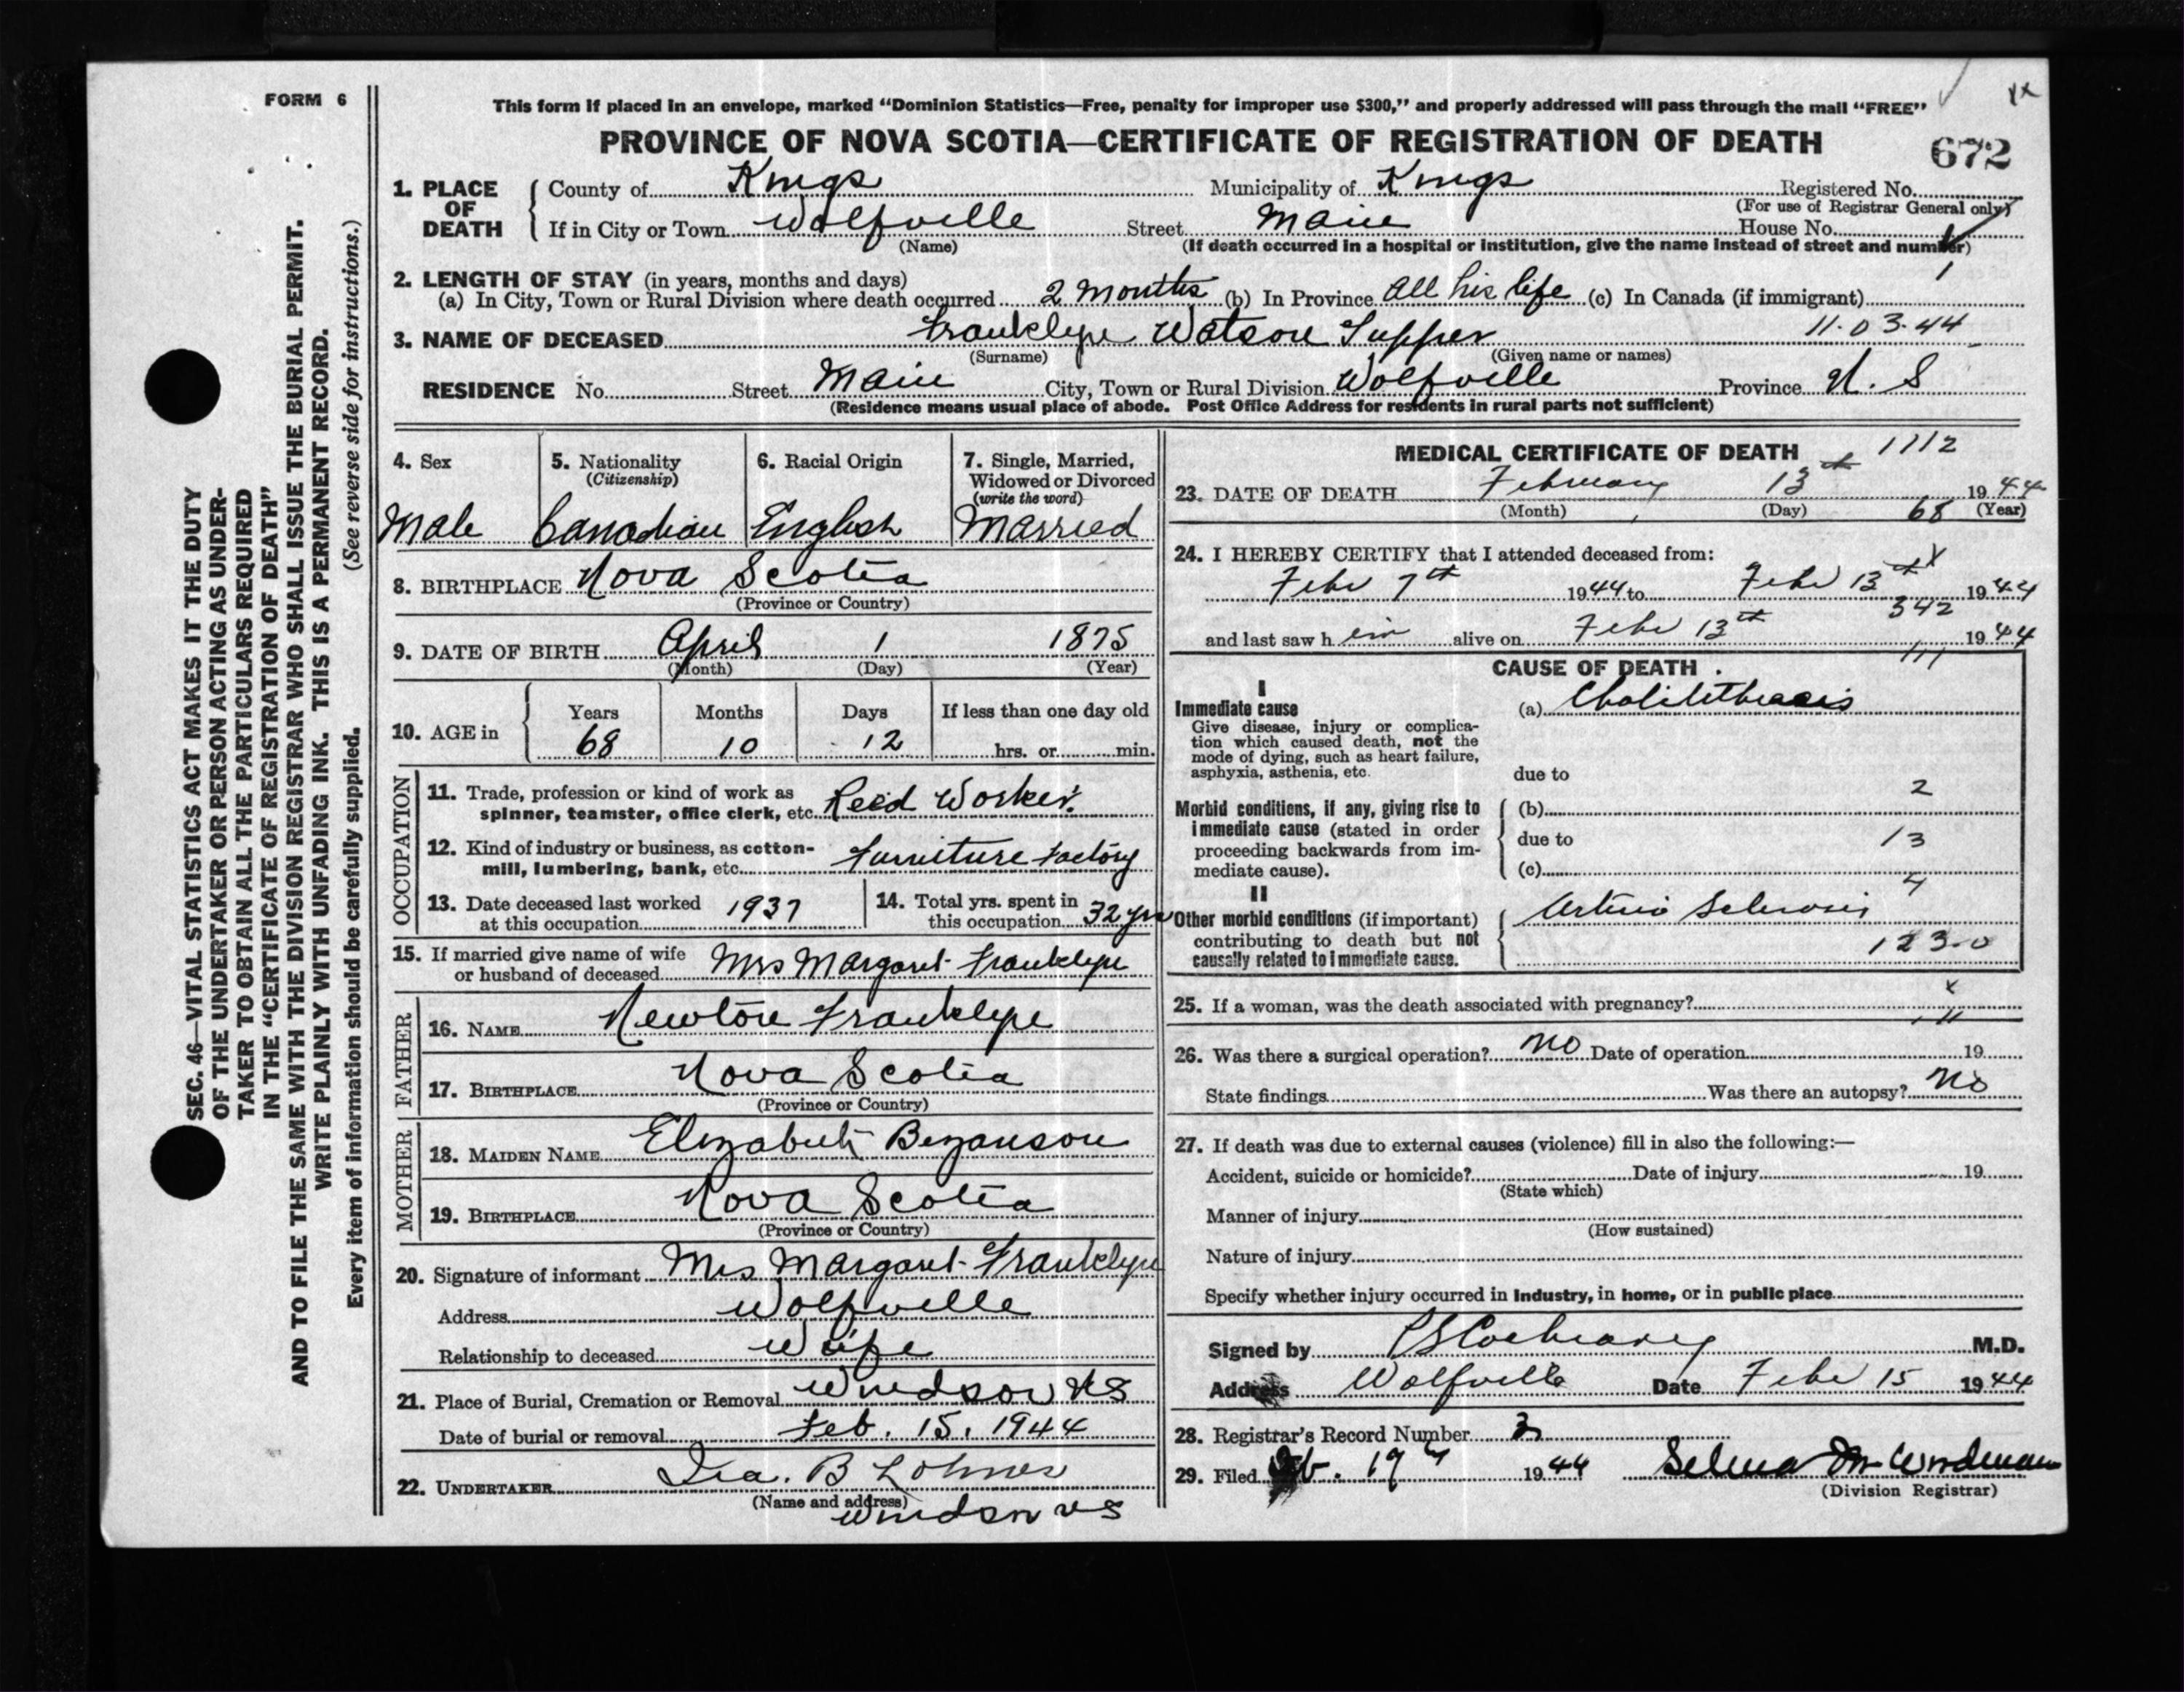 FORM 6
This form if placed in an envelope, marked “Dominion Statistics—Free, penalty for improper use $300,” and properly addressed will pass through the mail “FREE”
PROVINCE OF NOVA SCOTIA—CERTIFICATE OF REGISTRATION OF DEATH
672
1. PLACE OF DEATH County of Kings Municipality of Kings Registered No.
(For use of Registrar General only)
If in City or Town Wolfville Street Main House No.
(Name) (If death occurred in a hospital or institution, give the name instead of street and number)
1
2. LENGTH OF STAY (in years, months and days)
(a) In City, Town or Rural Division where death occurred 2 Months (b) In Province All his life (c) In Canada (if immigrant)
11.03.44
3. NAME OF DECEASED Franklyn Watson Tupper
(Surname) (Given name or names)
RESIDENCE No. Street Main City, Town or Rural Division Wolfville Province N. S
(Residence means usual place of abode. Post Office Address for residents in rural parts not sufficient)
4. Sex
Male
5. Nationality
(Citizenship)
Canadian
6. Racial Origin
English
7. Single, Married,
Widowed or Divorced
(write the word)
Married
8. BIRTHPLACE Nova Scotia
(Province or Country)
9. DATE OF BIRTH April 1 1875
(Month) (Day) (Year)
10. AGE in
Years Months Days If less than one day old
68 10 12 hrs. or min.
OCCUPATION
11. Trade, profession or kind of work as
spinner, teamster, office clerk, etc. Reed Worker.
12. Kind of industry or business, as cotton-
mill, lumbering, bank, etc. Furniture Factory
13. Date deceased last worked
at this occupation 1937
14. Total yrs. spent in
this occupation 32 yrs
15. If married give name of wife
or husband of deceased Mrs Margaret Franklyn
FATHER
16. NAME Newton Franklyn
17. BIRTHPLACE Nova Scotia
(Province or Country)
MOTHER
18. MAIDEN NAME Elizabeth Bezanson
19. BIRTHPLACE Nova Scotia
(Province or Country)
20. Signature of informant Mrs Margaret Franklyn
Address Wolfville
Relationship to deceased Wife
21. Place of Burial, Cremation or Removal Windsor NS
Date of burial or removal Feb. 15, 1944
22. UNDERTAKER Ira. B Lohnes
(Name and address)
Windsor NS
MEDICAL CERTIFICATE OF DEATH 1112
23. DATE OF DEATH February 13th 1944
(Month) (Day) (Year)
68
24. I HEREBY CERTIFY that I attended deceased from:
Feb 7th 1944 to Feb 13th 1944
342
and last saw him alive on Feb 13th 1944
111
CAUSE OF DEATH
I
Immediate cause
Give disease, injury or complica-
tion which caused death, not the
mode of dying, such as heart failure,
asphyxia, asthenia, etc.
(a) Cholilithiasis
due to
2
Morbid conditions, if any, giving rise to
immediate cause (stated in order
proceeding backwards from im-
mediate cause).
(b)
due to
13
(c)
4
II
Other morbid conditions (if important)
contributing to death but not
causally related to immediate cause.
Arterio Sclerosis
123-0
25. If a woman, was the death associated with pregnancy?
x
11
26. Was there a surgical operation? No Date of operation 19
State findings Was there an autopsy? No
27. If death was due to external causes (violence) fill in also the following:—
Accident, suicide or homicide? Date of injury 19
(State which)
Manner of injury
(How sustained)
Nature of injury
Specify whether injury occurred in Industry, in home, or in public place
Signed by PS Cochrane M.D.
Address Wolfville Date Feb 15 1944
28. Registrar's Record Number 3
29. Filed Feb. 19th 1944 Selena M Woodman
(Division Registrar)
SEC. 46—VITAL STATISTICS ACT MAKES IT THE DUTY
OF THE UNDERTAKER OR PERSON ACTING AS UNDER-
TAKER TO OBTAIN ALL THE PARTICULARS REQUIRED
IN THE “CERTIFICATE OF REGISTRATION OF DEATH”
AND TO FILE THE SAME WITH THE DIVISION REGISTRAR WHO SHALL ISSUE THE BURIAL PERMIT.
WRITE PLAINLY WITH UNFADING INK. THIS IS A PERMANENT RECORD.
Every item of information should be carefully supplied. (See reverse side for instructions.)